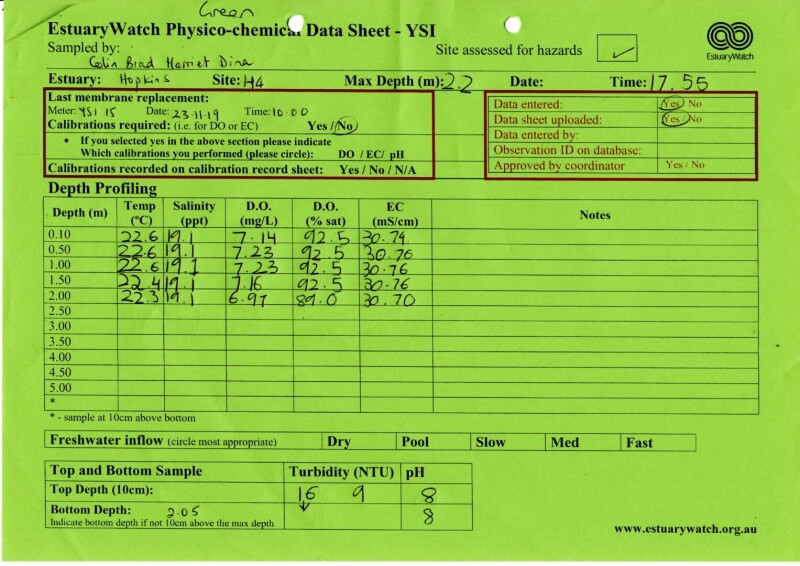 Green
EstuaryWatch Physico-chemical Data Sheet - YSI
Sampled by:
Colin Brad Harriet Dina
Site assessed for hazards ✓
EstuaryWatch
Estuary: Hopkins Site: H4 Max Depth (m): 2.2 Date: Time: 17.55
Last membrane replacement:
Meter: YSI 15 Date: 23.11.19 Time: 10.00
Calibrations required: (i.e. for DO or EC) Yes / No
• If you selected yes in the above section please indicate
Which calibrations you performed (please circle): DO / EC/ pH
Calibrations recorded on calibration record sheet: Yes / No / N/A
Data entered: Yes / No
Data sheet uploaded: Yes / No
Data entered by:
Observation ID on database:
Approved by coordinator Yes / No
Depth Profiling
Depth (m) Temp (ºC) Salinity (ppt) D.O. (mg/L) D.O. (% sat) EC (mS/cm) Notes
0.10 22.6 19.1 7.14 92.5 30.74
0.50 22.6 19.1 7.23 92.5 30.76
1.00 22.6 19.1 7.23 92.5 30.76
1.50 22.4 19.1 7.16 92.5 30.76
2.00 22.3 19.1 6.97 89.0 30.70
2.50
3.00
3.50
4.00
4.50
5.00
*
* - sample at 10cm above bottom
Freshwater inflow (circle most appropriate) Dry Pool Slow Med Fast
Top and Bottom Sample Turbidity (NTU) pH
Top Depth (10cm): 16 9 8
Bottom Depth: 2.05 8
Indicate bottom depth if not 10cm above the max depth
www.estuarywatch.org.au